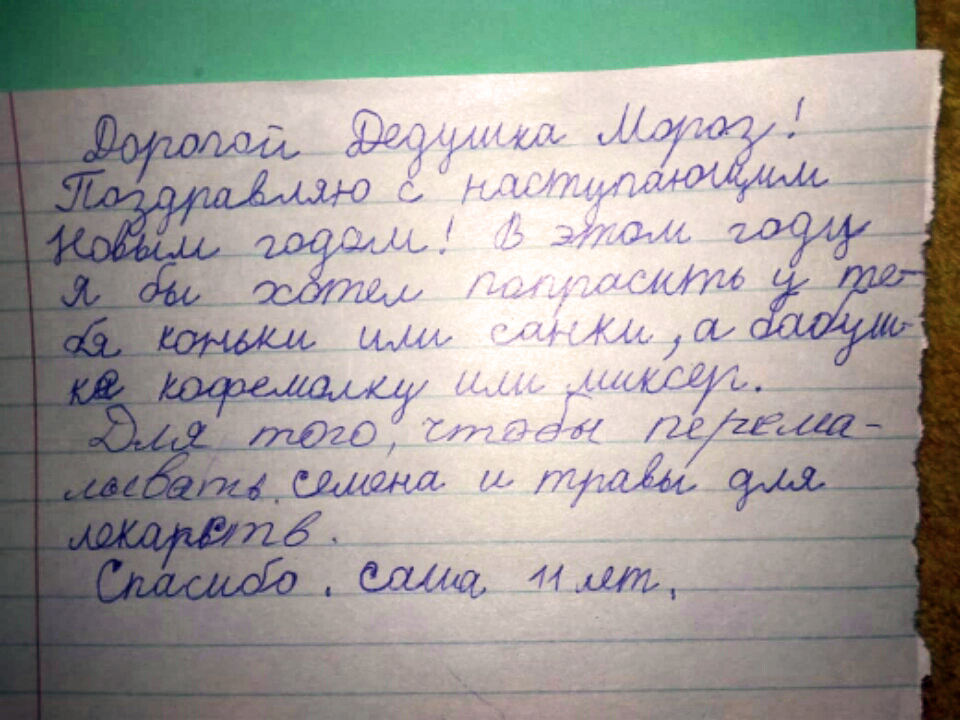 Дорогой Дедушка Мороз!
Поздравляю с наступающим
Новым годом! В этом году
я бы хотел попрасить у те-
бя коньки или санки, а бабуш-
ке кофемолку или миксер.
Для того, чтобы перема-
лывать семена и травы для
лекарств.
Спасибо. Саша 11 лет.